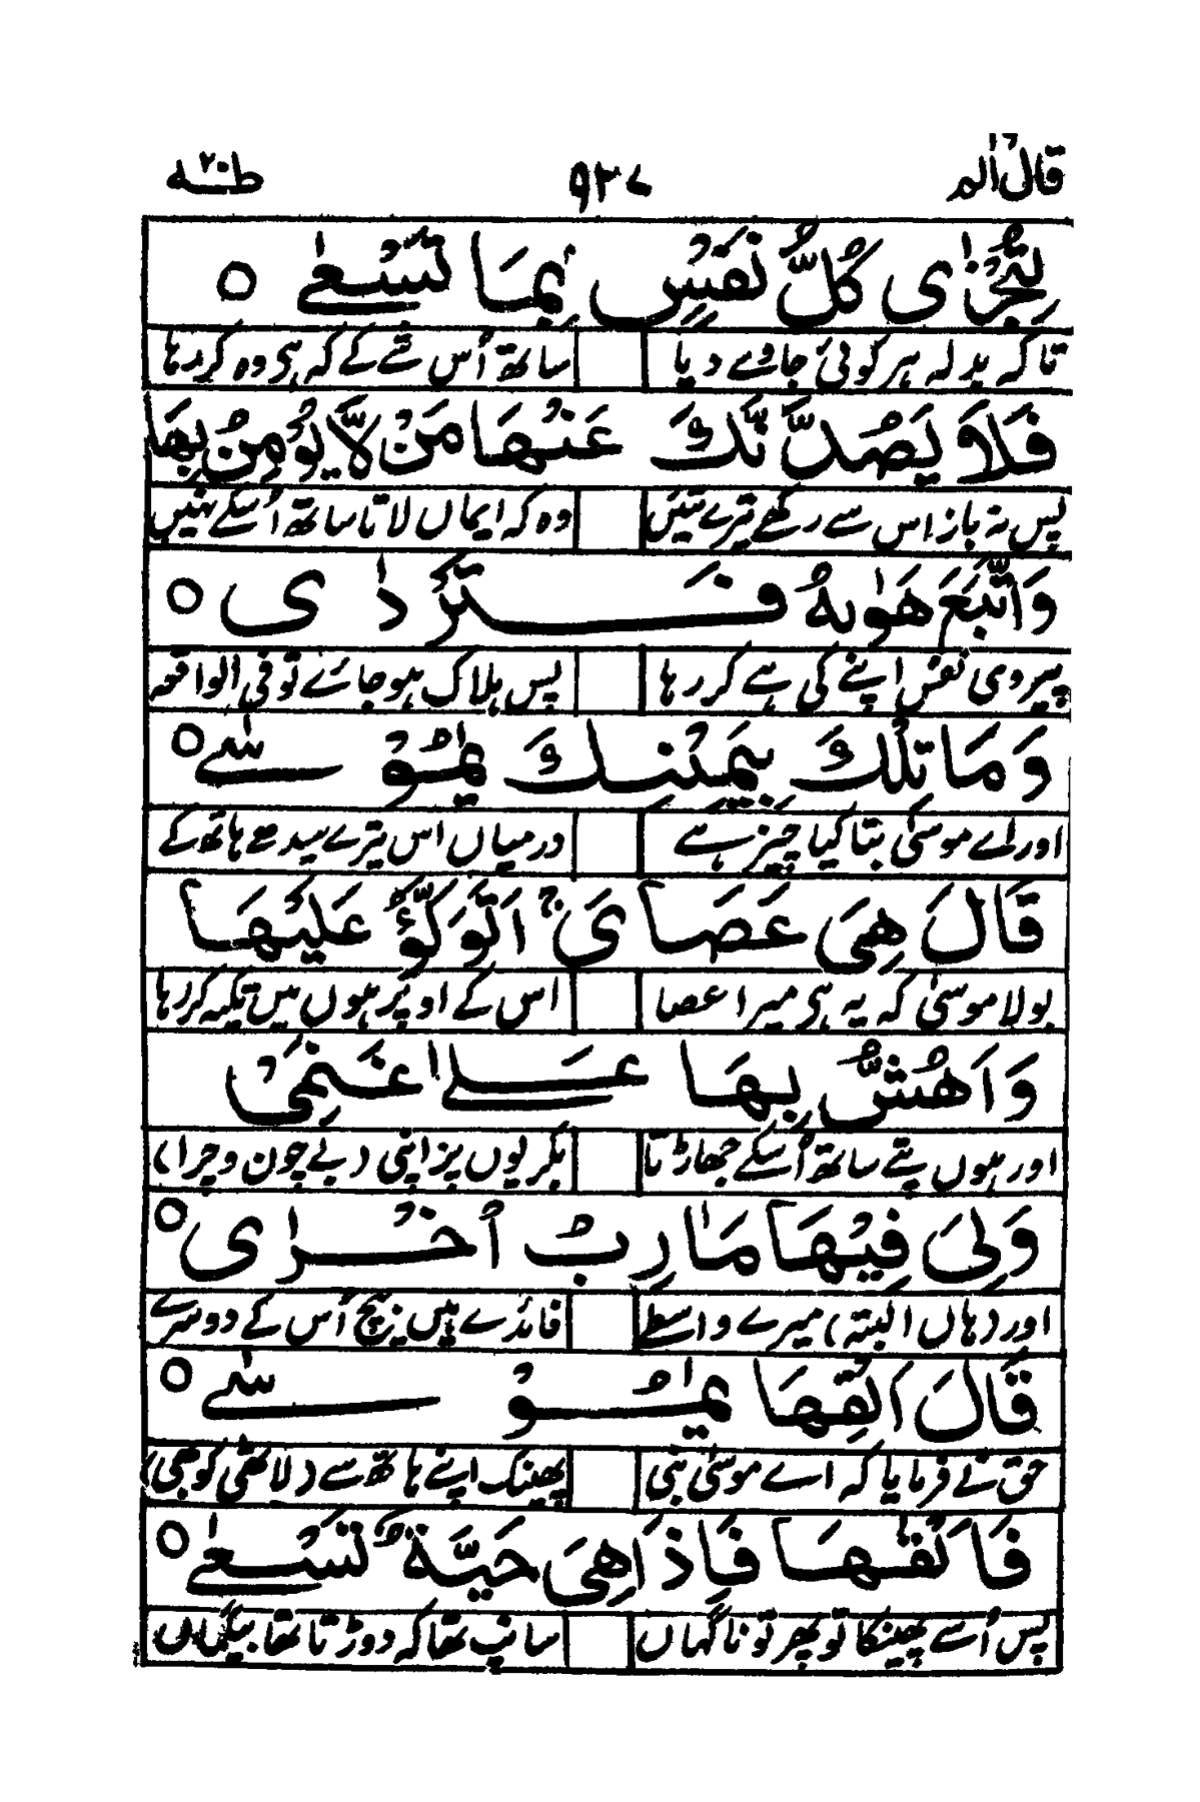 قال الم ٩٣٧ طٰهٰ ٢٠
لِتُجْزٰى كُلُّ نَفْسٍۭ بِمَا تَسْعٰى ○
تا کہ بدلہ ہر کوئی جاوے دیا ساتھ اُس شے کے کہ ہی وہ کر رہا
فَلَا يَصُدَّنَّكَ عَنْهَا مَنْ لَّا يُؤْمِنُ بِهَا
پس نہ باز اس سے رکھے تیرے تئیں وہ کہ ایماں لاتا ساتھ اُسکے نہیں
وَاتَّبَعَ هَوٰىهُ فَتَرْدٰى ○
پیروی نفس اپنے کی ہے کر رہا پس ہلاک ہو جائے تو فی الواقعہ
وَمَا تِلْكَ بِيَمِيْنِكَ يٰمُوْسٰى ○
اور اے موسیٰ بتا کیا چیز ہے درمیاں اس تیرے سیدھے ہاتھ کے
قَالَ هِىَ عَصَاىَ ۚ اَتَوَكَّؤُ عَلَيْهَا
بولا موسیٰ کہ یہ ہی میرا عصا اس کے اوپر ہوں میں تکیہ کر رہا
وَاَهُشُّ بِهَا عَلٰى غَنَمِىْ
اور ہوں پتے ساتھ اُسکے جھاڑتا بکریوں پر اپنی (بے چون و چرا)
وَلِىَ فِيْهَا مَاٰرِبُ اُخْرٰى ○
اور (ہاں البتہ) میرے واسطے فائدے ہیں بیچ اُس کے دوسرے
قَالَ اَلْقِهَا يٰمُوْسٰى ○
حق نے فرمایا کہ اے موسیٰ نبی پھینک اپنے ہاتھ سے (لاٹھی کو بھی)
فَاَلْقٰىهَا فَاِذَا هِىَ حَيَّةٌ تَسْعٰى ○
پس اُسے پھینکا تو پھر تو ناگہاں سانپ تھا کہ دوڑتا تھا بیگماں